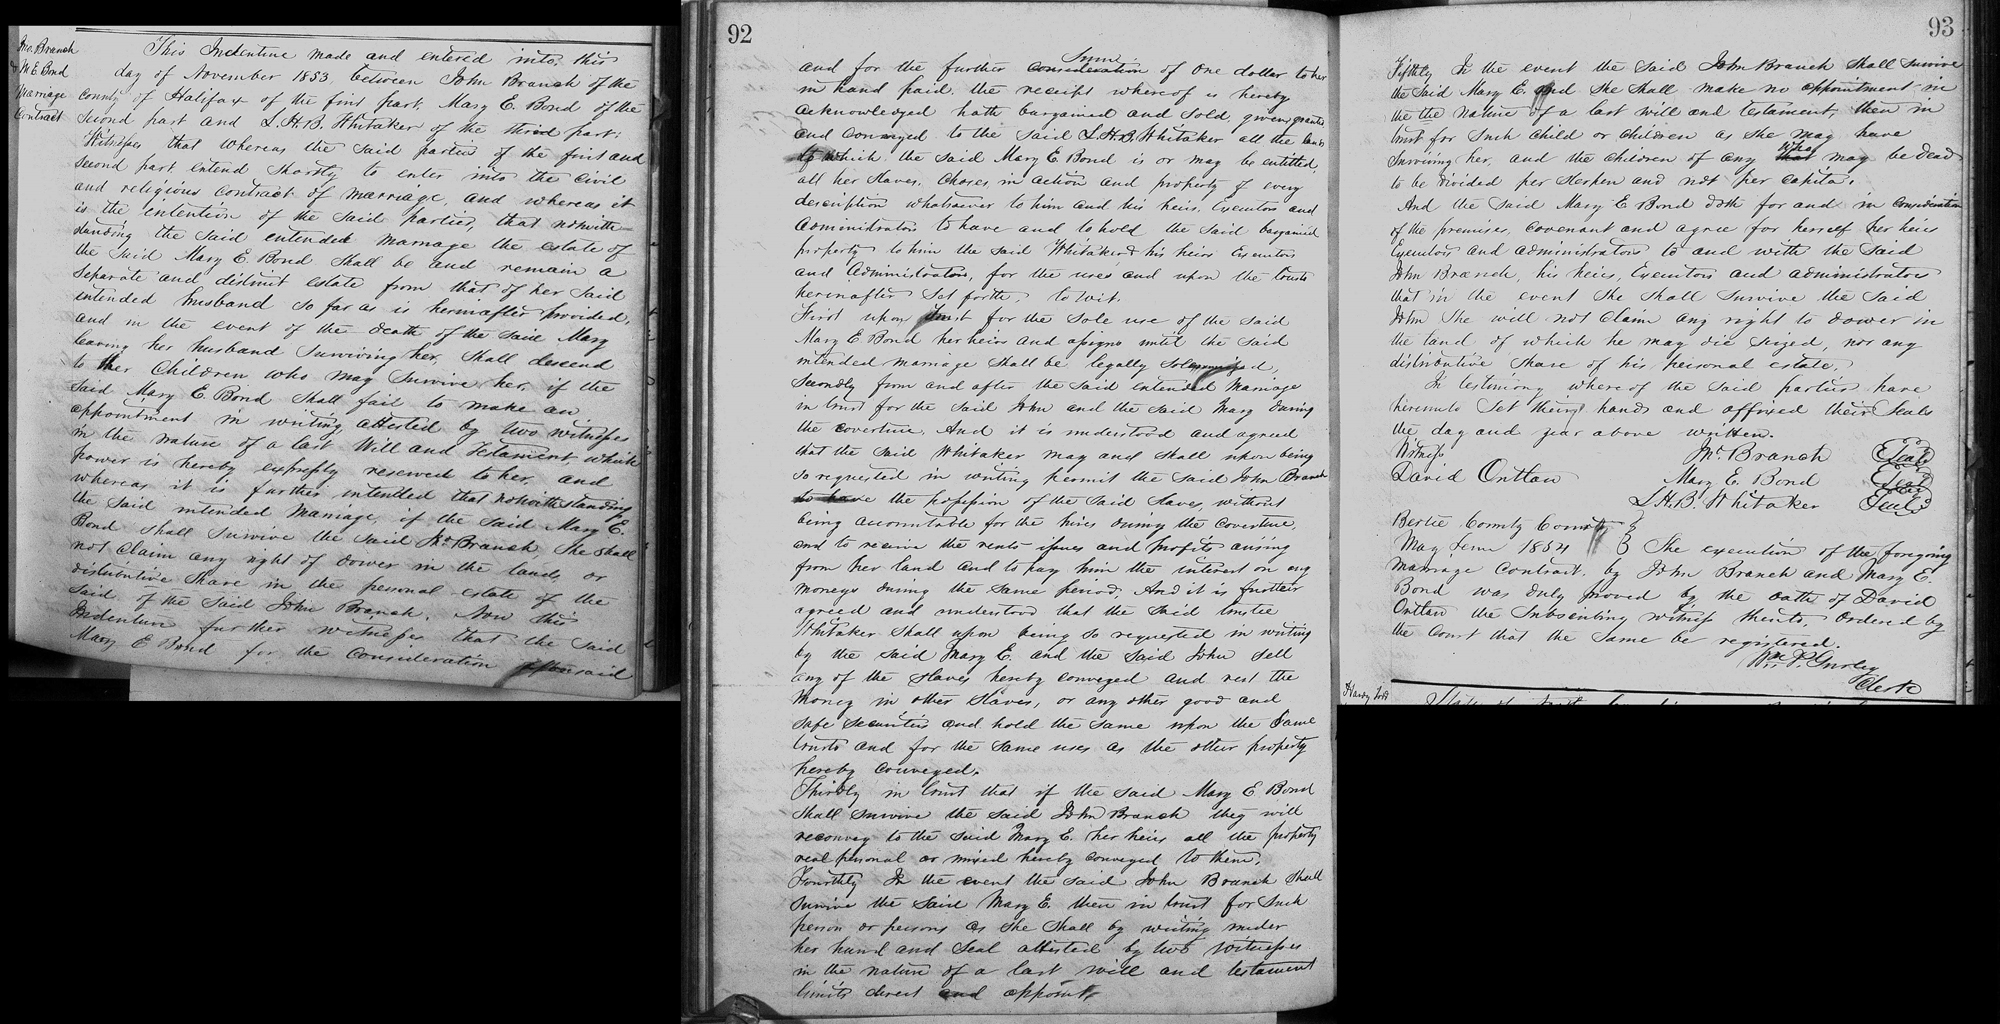 Jno. Branch
& M E Bond
Marriage
Contract
This Indenture made and entered into, this
day of November 1853, between John Branch of the
County of Halifax of the first part, Mary E. Bond of the
second part and L.H.B. Whitaker of the third part:
Witness that whereas the said parties of the first and
second part, entend shortly to enter into the civil
and religious contract of marriage, and whereas it
is the intention of the said parties, that notwith-
standing the said entended marriage the estate of
the said Mary E. Bond shall be and remain a
separate and distinct estate from that of her said
intended husband so far as is herinafter provided,
and in the event of the death of the said Mary
leaving her husband surviving her, shall descend
to her Children who may survive her, if the
said Mary E. Bond shall fail to make an
appointment in writing attested by two witnesses
in the nature of a last Will and Testament, which
power is hereby expressly reserved to her, and
whereas it is further intended that notwithstanding
the said intended Marriage, if the said Mary E.
Bond shall survive the said Jno. Branch, she shall
not claim any right of dower in the lands, or
distributive share in the personal estate of the
said of the said John Branch. Now this
Indenture further witnesses that the said
Mary E Bond for the consideration aforesaid
92
and for the further consideration Sum of one dollar to her
in hand paid, the receipt whereof is hereby
acknowledged hath bargained and sold, given, granted
and conveyed to the said L.H.B. Whitaker all the lands
to which the said Mary E Bond is or may be entitled,
all her slaves, choses, in action and property of every
description whatsoever to him and his heirs, Executors and
Administrators to have and to hold the said bargained
property to him the said Whitaker & his heirs Executors
and Administrators, for the uses and upon the trusts
herinafter set forth, to wit,
First upon trust for the sole use of the said
Mary E Bond her heirs and assigns until the said
intended marriage shall be legally solemnized,
Secondly from and after the said intended Marriage
in trust for the said John and the said Mary during
the coverture, And it is understood and agreed
that the said Whitaker may and shall upon being
so requested in writing permit the said John Branch
to have the possession of the said slaves, without
being accountable for the hires during the Coverture,
and to receive the rents issues and profits arising
from her land and to pay him the interest on any
moneys during the same period, And it is further
agreed and understood that the said trustee
Whitaker shall upon being so requested in writing
by the said Mary E. and the said John sell
any of the slaves hereby conveyed and vest the
money in other slaves, or any other good and
safe securities and hold the same upon the same
trusts and for the same uses as the other property
hereby conveyed.
Thirdly in trust that if the said Mary E Bond
shall survive the said John Branch they will
reconvey to the said Mary E. her heirs all the property
real personal or mixed hereby conveyed to them,
Fourthly In the event the said John Branch shall
survive the said Mary E. then in trust for such
person or persons as she shall by writing under
her hand and seal attested by two witnesses
in the nature of a last will and testament
limits direct and appoint,
93
Fifthly In the event the said John Branch shall survive
the said Mary E. and she shall make no appointment in
the the nature of a last will and testament, then in
trust for such child or children as she may have
surviving her, and the children of any that who may be dead
to be divided per sterpen and not per capita.
And the said Mary E Bond doth for and in consideration
of the premises, covenant and agree for herself her heirs
Executors and administrators to and with the said
John Branch, his heirs, Executors and administrators
that in the event she shall survive the said
John she will not claim any right to dower in
the land of which he may die seized, nor any
distributive share of his personal estate,
In testimony whereof the said parties have
hereunto set their hands and affixed their seals
the day and year above written.
Witness
Jno. Branch Seal
David Outlaw Mary E. Bond Seal
L.H.B. Whitaker Seal
Bertie County Court
May Term 1854 The execution of the foregoing
marriage contract, by John Branch and Mary E.
Bond was duly proved by the oath of David
Outlaw the subscribing witness thereto, Ordered by
the Court that the same be registered.
Wm. P. Gurley
Clerk